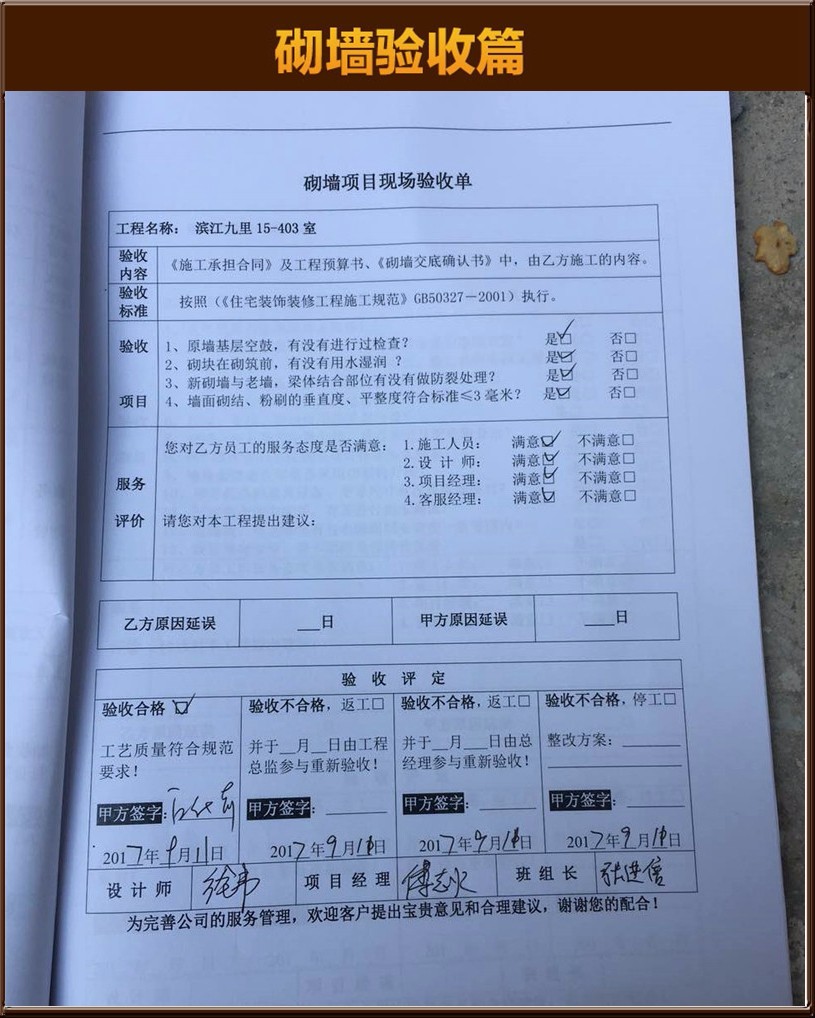 砌墙验收篇
砌墙项目现场验收单
工程名称： 滨江九里 15-403 室
验收内容 《施工承担合同》及工程预算书、《砌墙交底确认书》中，由乙方施工的内容。
验收标准 按照（《住宅装饰装修工程施工规范》GB50327－2001）执行。
验收项目
1、原墙基层空鼓，有没有进行过检查？ 是☑ 否□
2、砌块在砌筑前，有没有用水湿润 ？ 是☑ 否□
3、新砌墙与老墙，梁体结合部位有没有做防裂处理？ 是☑ 否□
4、墙面砌结、粉刷的垂直度、平整度符合标准≤3 毫米？ 是☑ 否□
服务评价
您对乙方员工的服务态度是否满意： 1.施工人员： 满意☑ 不满意□
2.设 计 师： 满意☑ 不满意□
3.项目经理： 满意☑ 不满意□
4.客服经理： 满意☑ 不满意□
请您对本工程提出建议：
乙方原因延误 ___日 甲方原因延误 ____日
验 收 评 定
验收合格 ☑ 验收不合格，返工□ 验收不合格，返工□ 验收不合格，停工□
工艺质量符合规范 并于__月__日由工程 并于__月___日由总 整改方案：________
要求！ 总监参与重新验收！ 经理参与重新验收！
甲方签字： 甲方签字：______ 甲方签字：______ 甲方签字：______
2017年9月11日 2017年9月11日 2017年9月11日 2017年9月11日
设 计 师 徐伟 项 目 经 理 班 组 长 张进信
为完善公司的服务管理，欢迎客户提出宝贵意见和合理建议，谢谢您的配合！